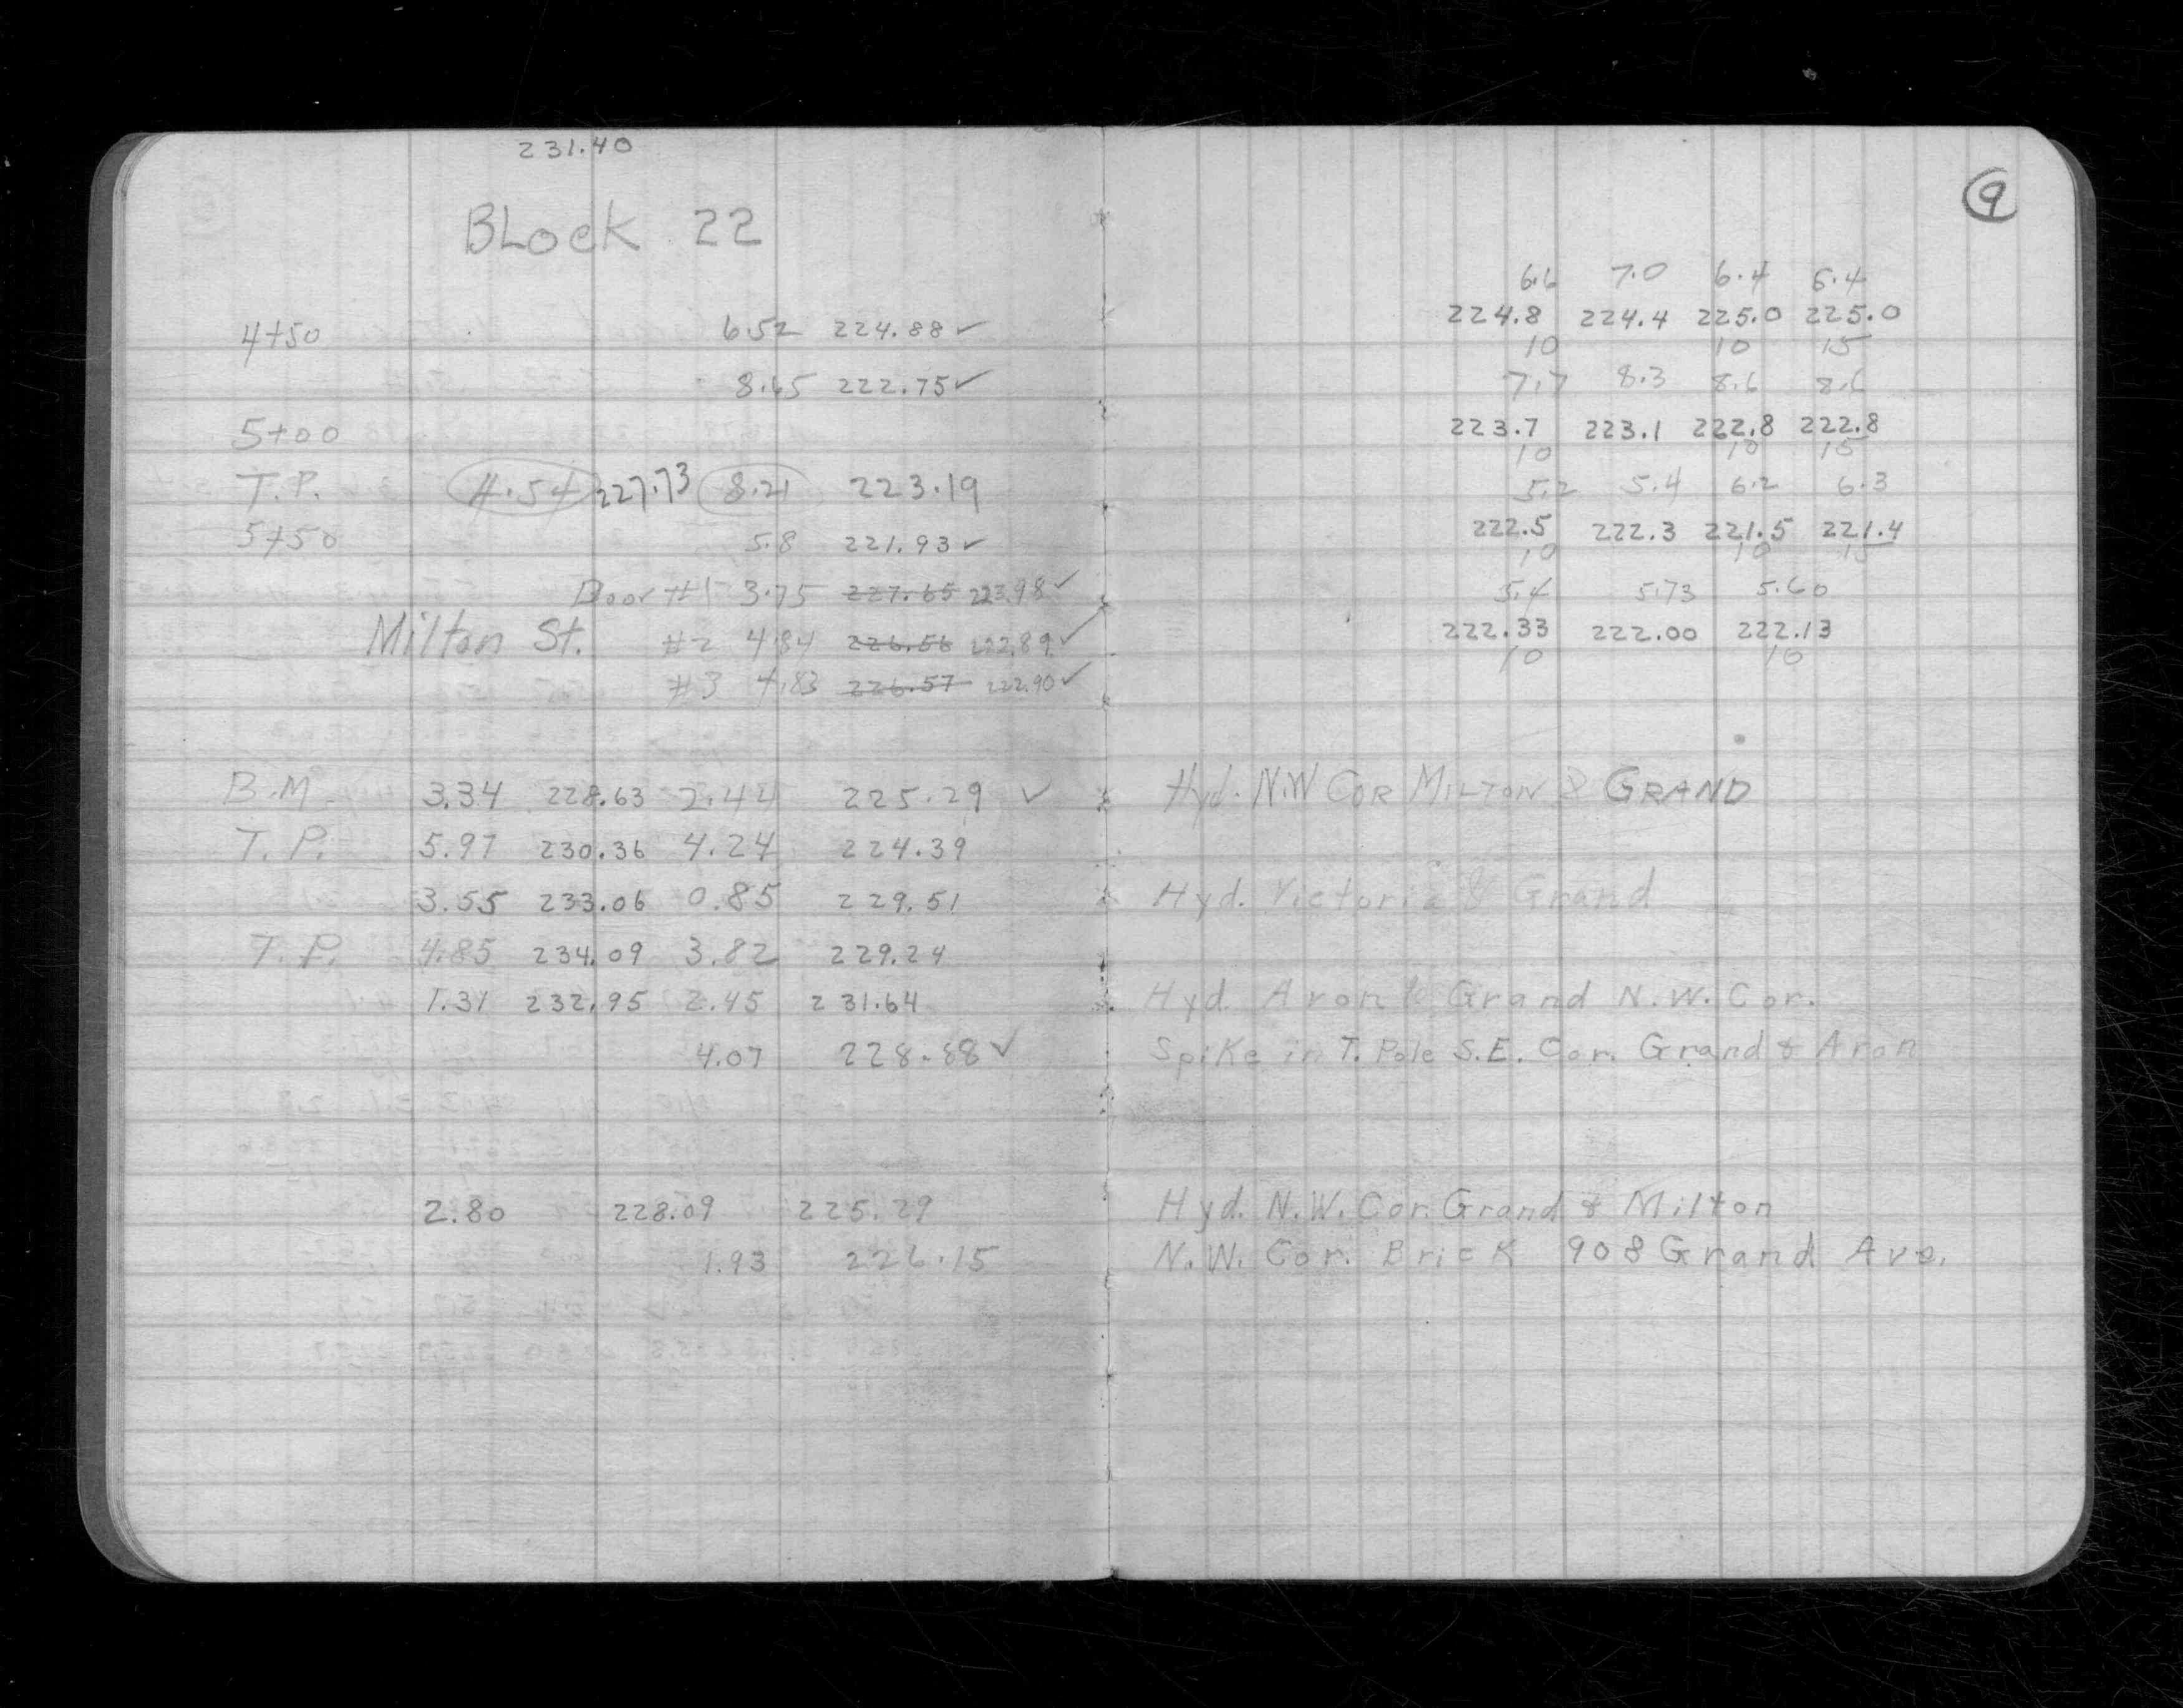 231.40
BLock 22
4+50 6.52 224.88 ✓
8.65 222.75 ✓
5+00
T.P. 4.54 227.73 8.21 223.19
5+50 5.8 221.93 ✓
Door #1 3.75 227.65 223.98 ✓
Milton St. #2 4.84 226.56 222.89 ✓
#3 4.83 226.57 222.90 ✓
B.M. 3.34 228.63 2.44 225.29 ✓
T.P. 5.97 230.36 4.24 224.39
3.55 233.06 0.85 229.51
T.P. 4.85 234.09 3.82 229.24
1.31 232.95 2.45 231.64
4.07 228.88 ✓
2.80 228.09 225.29
1.93 226.15
9
6.6 7.0 6.4 6.4
224.8 224.4 225.0 225.0
10 10 15
7.7 8.3 8.6 8.6
223.7 223.1 222.8 222.8
10 10 15
5.2 5.4 6.2 6.3
222.5 222.3 221.5 221.4
10 10 15
5.4 5.73 5.60
222.33 222.00 222.13
10 10
Hyd. N.W COR MILTON & GRAND
Hyd. Victoria & Grand
Hyd. Avon & Grand N.W. Cor.
Spike in T. Pole S.E. Cor. Grand & Avon
Hyd. N.W. Cor. Grand & Milton
N.W. Cor. Brick 908 Grand Ave.